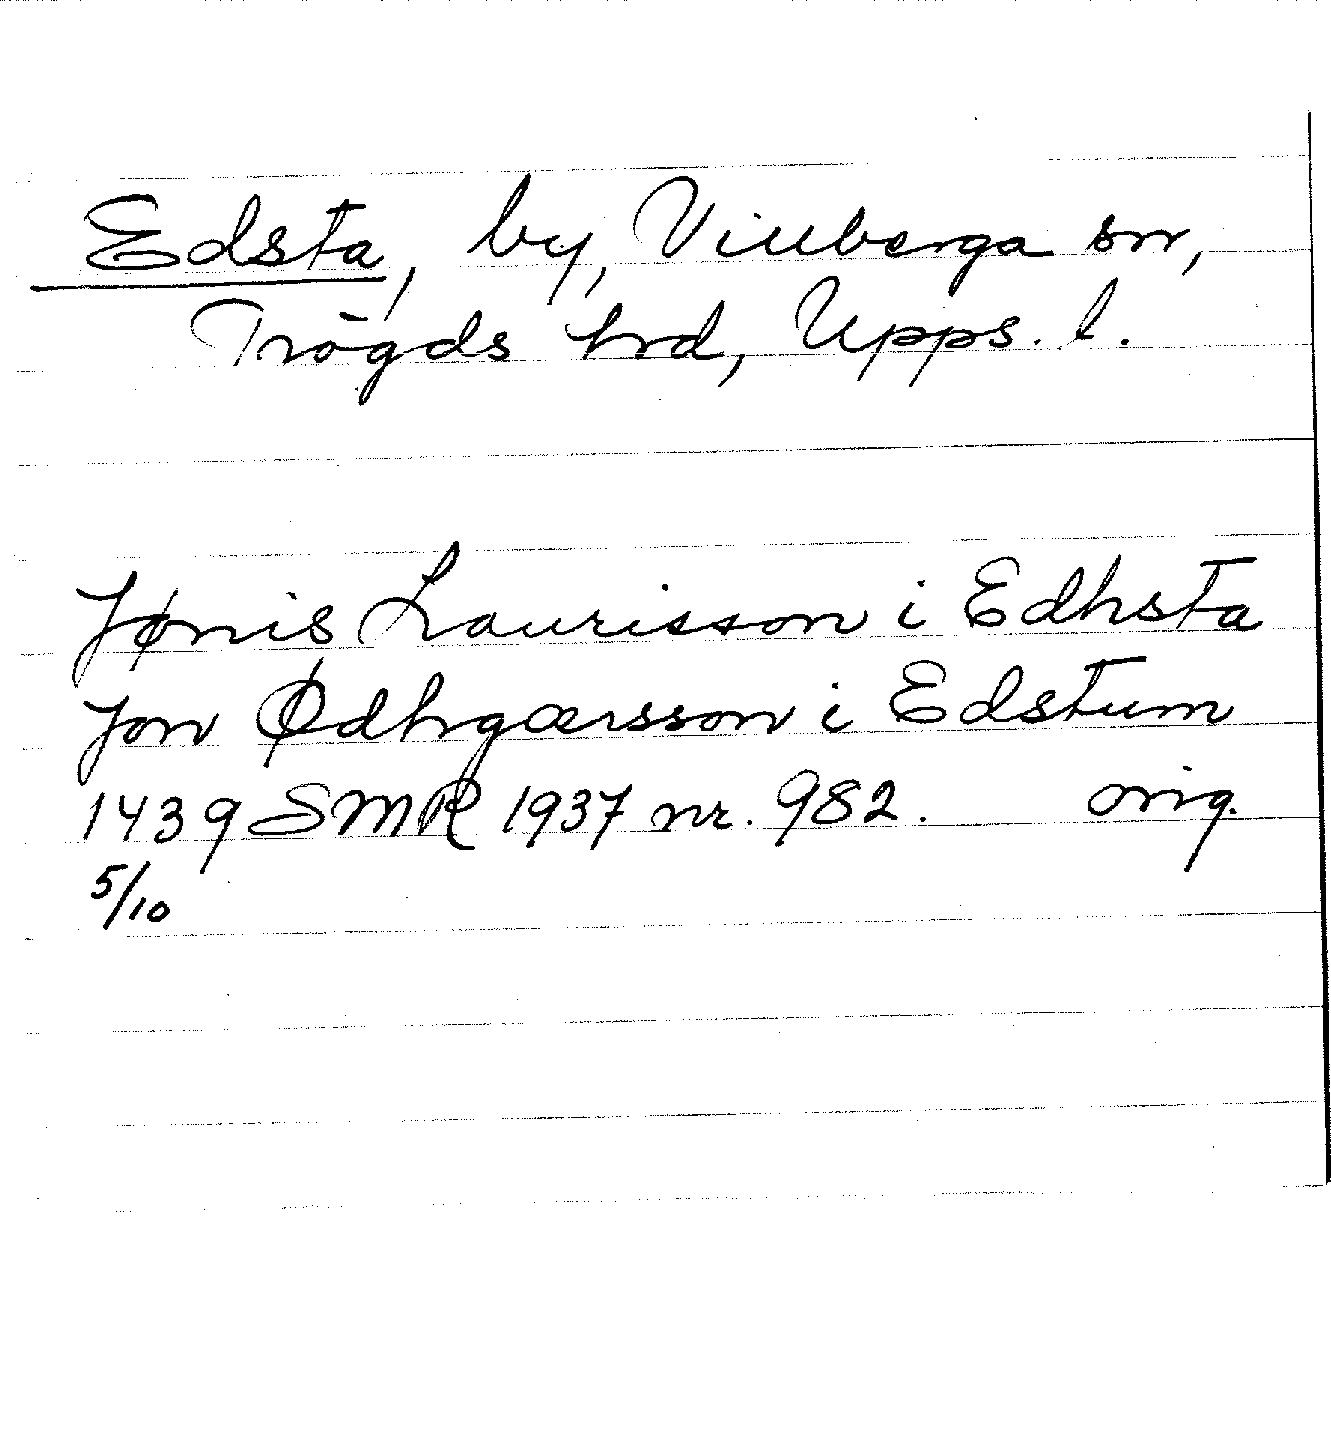 Edsta, by, Villberga sn,
Trögds hd, Upps. l.
Jønis Laurisson i Edhsta
Jon Ødhgærsson i Edstum
1439 SMR 1937 nr. 982. orig.
5/10